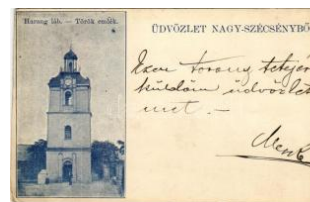 Harang láb. — Török emlék.
ÜDVÖZLET NAGY-SZÉCSÉNYBŐ
Ezen torony tetején
küldöm üdvözlet
met. —